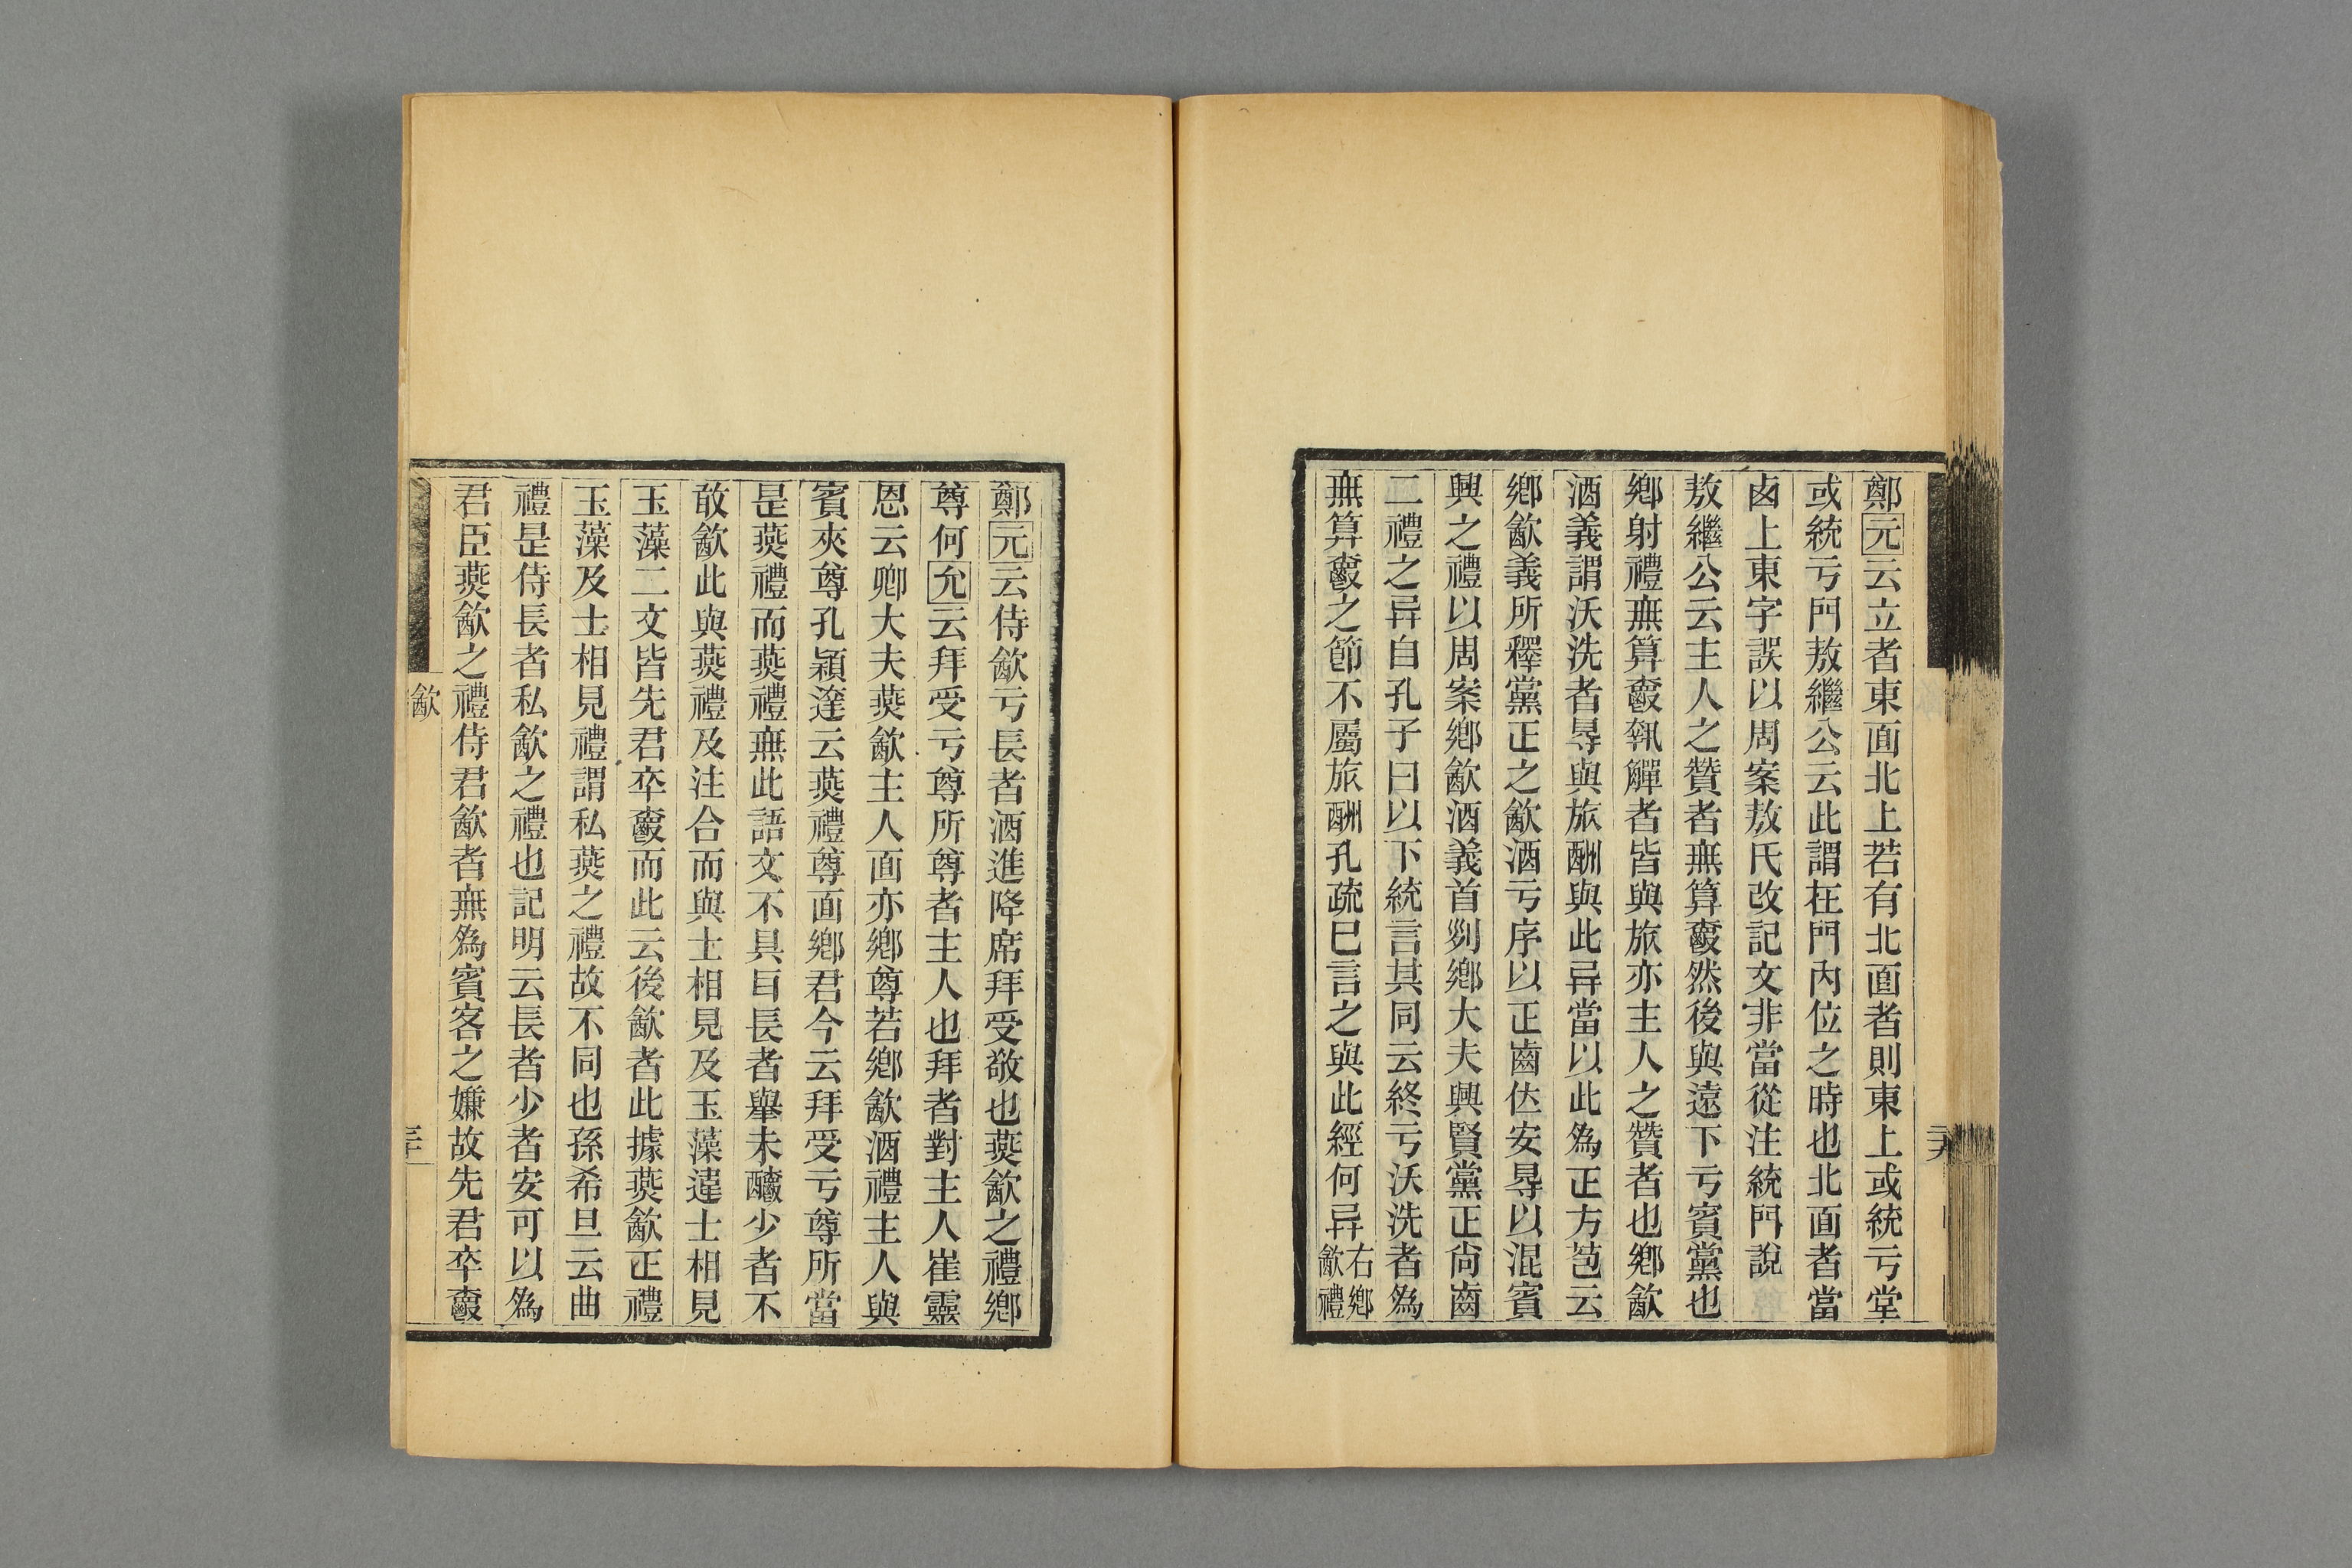 鄭元云立者東面北上若有北面者則東上或統亏堂
或統亏門敖繼公云此謂在門內位之時也北面者當
卤上東字誤以周案敖氏改記文非當從注統門說
敖繼公云主人之贊者無算𧮫然後與遠下亏賓黨也
鄉射禮無算𧮫執觶者皆與旅亦主人之贊者也鄉㱃
酒義謂沃洗者㝵與旅酬與此异當以此為正方苞云
鄉㱃義所釋黨正之㱃酒亏序以正齒位安㝵以混賓
興之禮以周案鄉㱃酒義首𠛱鄉大夫興賢黨正尚齒
二禮之异自孔子曰以下統言其同云終亏沃洗者為
無算𧮫之節不屬旅酬孔疏已言之與此經何异右鄉㱃禮
鄭元云侍㱃亏長者酒進降席拜受敬也燕㱃之禮鄉
尊何允云拜受亏尊所尊者主人也拜者對主人崔靈
恩云卿大夫燕㱃主人面亦鄉尊若鄉㱃酒禮主人與
賓夾尊孔穎達云燕禮尊面鄉君今云拜受亏尊所當
是燕禮而燕禮無此語文不具㠯長者舉未釂少者不
敢㱃此與燕禮及注合而與士相見及玉藻違士相見
玉藻二文皆先君卒𧮫而此云後㱃者此據燕㱃正禮
玉藻及士相見禮謂私燕之禮故不同也孫希旦云曲
禮是侍長者私㱃之禮也記明云長者少者安可以為
君臣燕㱃之禮侍君㱃者無為賓客之嫌故先君卒𧮫
㱃